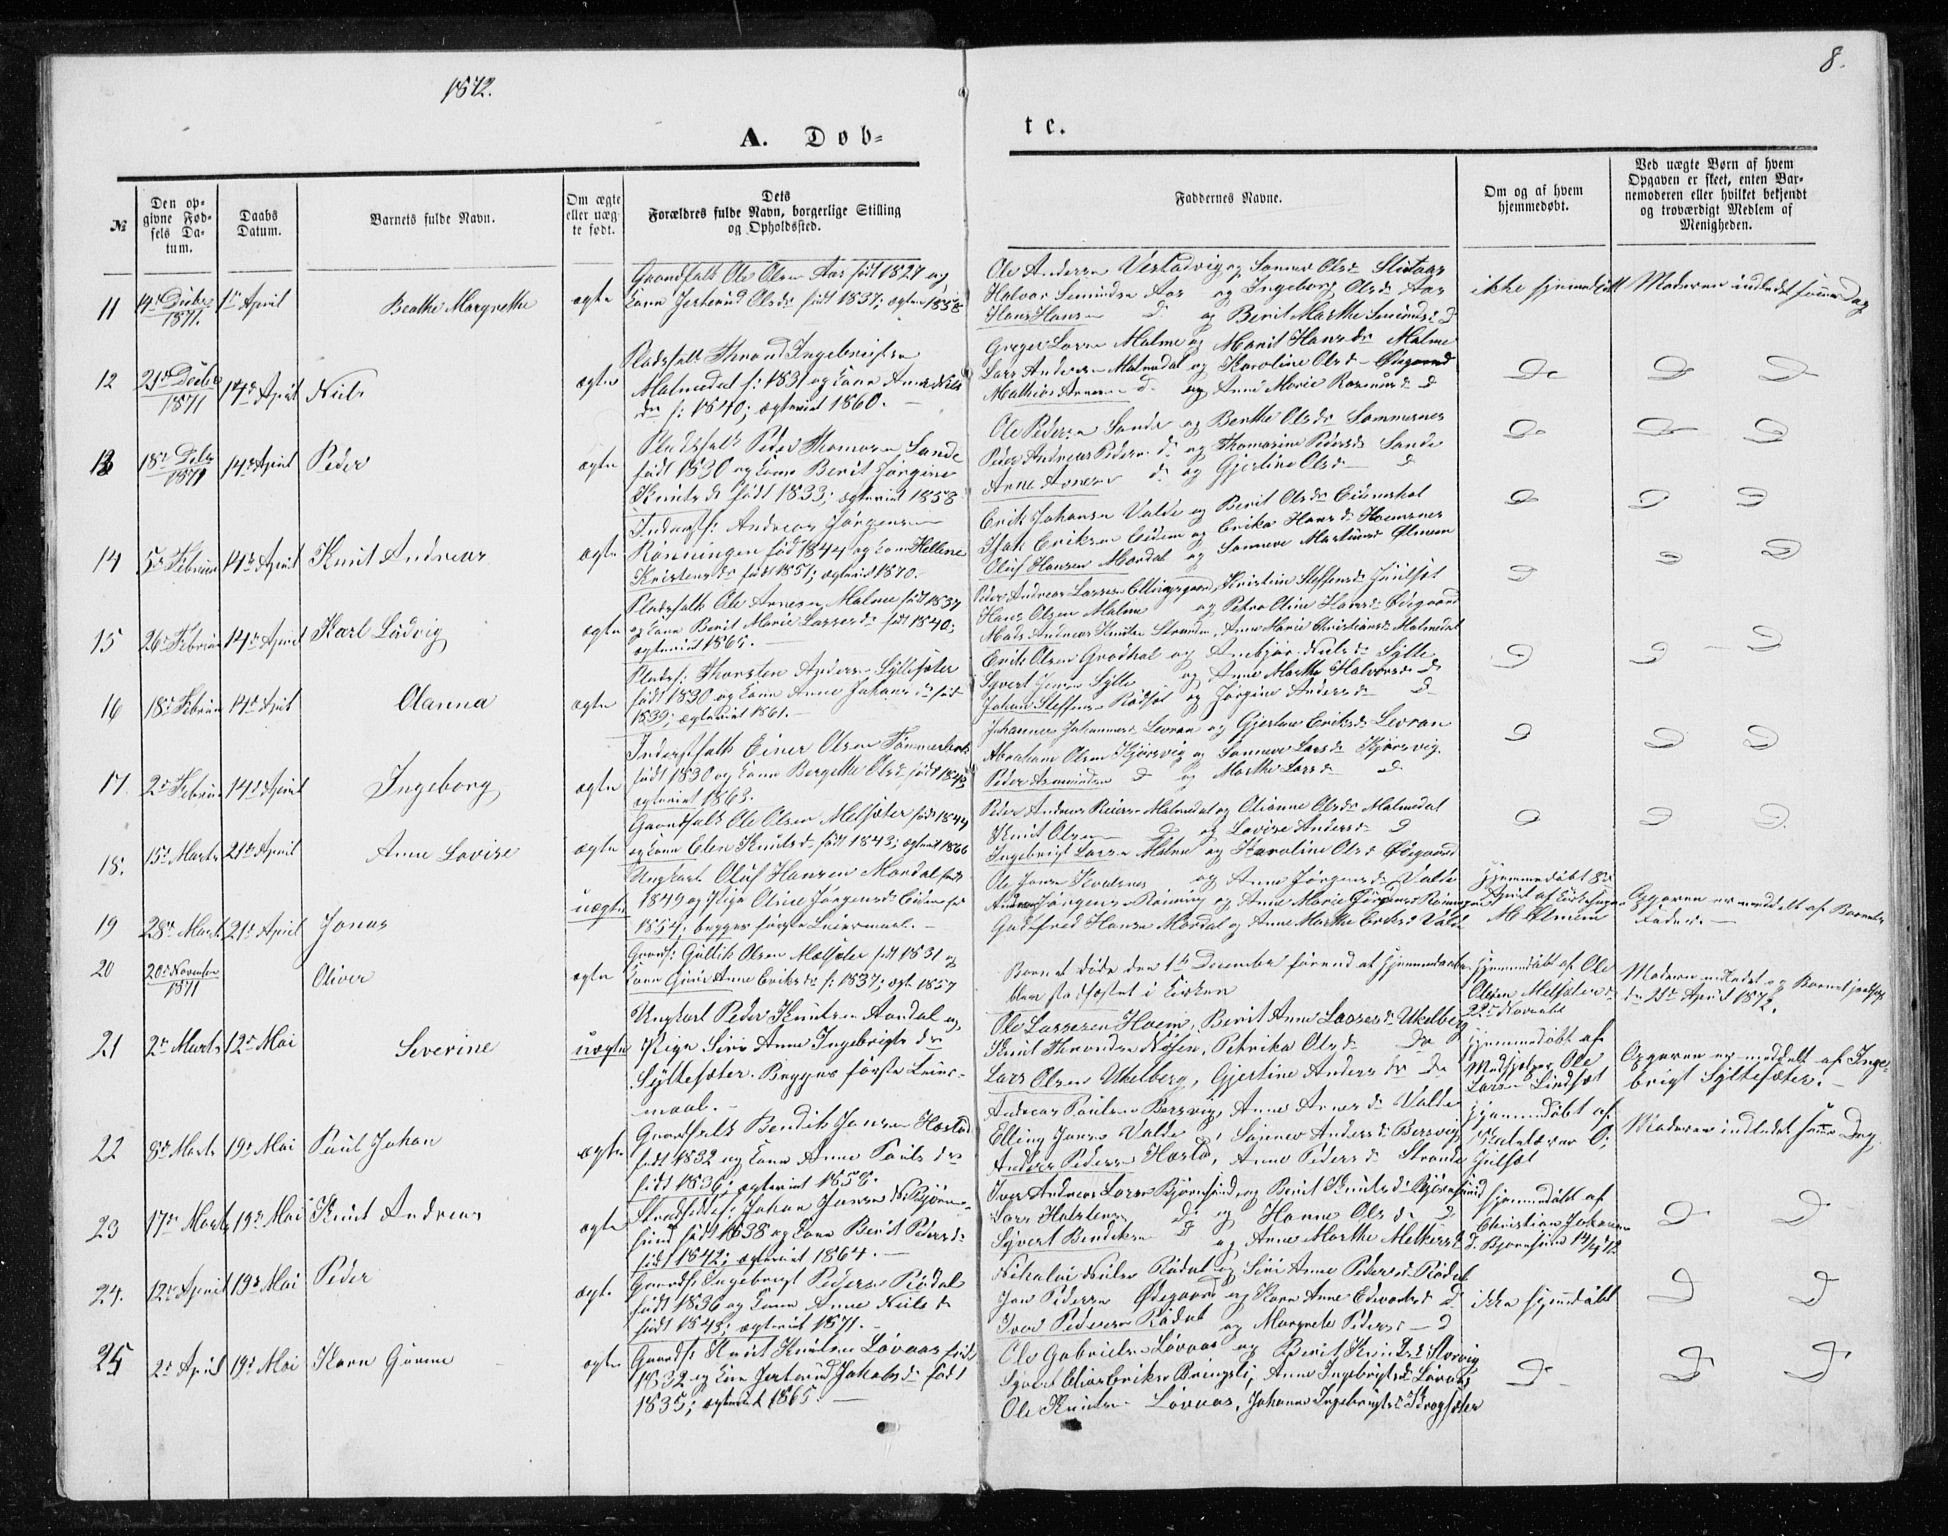 1872.
8.
A. Døb-
te.
№
Den op-
givne Fød-
sels Da-
tum.
Daabs
Datum.
Barnets fulde Navn.
Om ægte
eller uæg-
te født.
Dets
Forældres fulde Navn, borgerlige Stilling
og Opholdssted.
Faddernes Navne.
Om og af hvem
hjemmedøbt.
Ved uægte Børn af hvem
Opgaven er skeet, enten Bar-
nemoderen eller hvilket bekjendt
og troværdigt Medlem af
Menigheden.
11 14de Decbr 1871. 1ste April Beathe Margrethe ægte
Gaardfolk Ole Olsen Aas født 1827 og
Kone Jertrud Olsdr født 1837; ægtev 1858
Ole Andersen og Sønnev Olsdr
Halvor Aas og Ingeborg Olsdr Aas
Hans Hansen D og Berit Marthe
ikke hjemmedøbt
Moderen indledet samme Dag
12 21de Decbr 1871 14de April Nils ægte
Pladsfolk Thrond Ingebrigtsen
Malmedal f: 1831 og Kone Anne Nils
dr f: 1840; ægteviet 1860.
Greger Larsen Malme og Marit Hansdr Malme
Lars Andersen Malmedal og Karoline Olsdr Ødegaard
Mathias Arnesen D og Anne Marie Rasmusdr D
Do D D
13 18de Decbr 1871 14de April Peder ægte
Pladsfolk Peder Thomasen Sande
født 1830 og Kone Berit Jørgine
Knutsdr født 1833; ægteviet 1858
Ole Pedersen Sande og Berthe Olsdr Sommernes
Peder Andreas Pedersen D og Thomasine Pedersdr Sande
Arne Arnesen D og Gjertine Olsdr D
Do D D
14 5te Februar 14de April Knut Andreas ægte
Inderstf: Andreas Jørgensen
Rønningen født 1844 og Kone Hellene
Kristensdr født 1851; ægteviet 1870.
Erik Johansen Valde og Berit Olsdr Eidemshol
Isak Eriksen Eidem og Erika Hansdr Hoemsnes
Oluf Hansen Mordal og Sønneve Martinusdr
D D D
15 26de Februar 14de April Karl Ludvig ægte
Pladsfolk Ole Arnesen Malme født 1837
og Kone Berit Marie Lassesdr født 1840;
ægteviet 1865.
Peder Andreas Lassesen Ellingsgaard, Kristine Steffensdr Julset
Hans Olsen Malme og Petra Oline Hansdr Ødegaard
Mads Andreas Knutsen Stranden, Anne Marie Christiansdr Malmedal
D D D
16 18de Februar 14de April Olanna ægte
Pladsf: Thorsten Andersen Syltesæter
født 1830 og Kone Anne Johansdr født
1839; ægteviet 1861.
Erik Olsen Grodhal og Anebjør Nilsdr Sylte
Syvert Jensen Sylte og Anne Marthe Halvorsdr D
Johan Steffensen Rødsæt og Jørgine Andersdr D
D D D
17. 2de Februar 14de April Ingeborg ægte
Inderstfolk Einer Olsen Tømmerhol
født 1830 og Kone Bergethe Olsdr født 1843
ægteviet 1863.
Johannes Johannesen Levran og Gjertine Eriksdr Levran
Abraham Olsen Kjørsvig og Sønneve Larsdr Kjørsvig.
Peder Asmundsen D og Marthe Larsdr D
D D D
18. 15de Marts 21de April Anne Lovise ægte
Gaardfolk Ole Olsen Melsæter født 1844
og Kone Elen Knutsdr født 1843; ægteviet 1866
Peder Andreas Reiersen Malmedal og Olianne Olsdr Malmedal
Knut Olsen D og Lovise Andersdr D
Ingebrigt Larsen Malme og Karoline Olsdr Ødegaard
D D D
19 28de Marts 21de April Jonas uægte
Ungkarl Oluf Hansen Mordal født
1849 og Pige Oline Jørgensdr Eidem født
1854; begges første Leiermaal.
Ole Jonsen og Anne Jørgensdr Valde
Andreas Jørgensen Rønning og Anne Marie Jørgensdr Rønningen
Gudfred Hansen Mordal og Anne Marthe Eriksdr Valde
Hjemmedøbt 8de
April af Kirkesanger
M. Elmem
Opgaven er meddelt af Barnets
Fader.
20 20de November 1871 Oliver ægte
Gaardf: Gullik Olsen Melsæter født 1831 og
Kone Anne Eriksdr f: 1837; ægtev 1857
Barnet døde den 1ste December førend at Hjemmedaaben
blev stadfæstet i Kirken
Hjemmedøbt af Ole
Olsen Melsæter
22de Novembr
Moderen indledet og Barnet
den 21de April 1872.
21 2de Marts 12te Mai Severine uægte
Ungkarl Peder Knutsen Aandal og
Pige Siri Anne Ingebrigtsdr
Syltesæter. Begges første Leier-
maal.
Ole Lassesen Hoem, Berit Anne Lassesdr Utkelberg
Knut Throndsen Næsen, Petrika Olsdr Do
Lars Olsen Utkelberg, Gjertine Andersdr Do
Hjemmedøbt af
Medhjelper Ole
Larsen Lindset
Opgaven er meddelt af Inge-
brigt Syltesæter.
22 8de Marts 19de Mai Paul Johan ægte
Gaardfolk Bendik Jonsen Harstad
født 1832 og Kone Anne Paulsdr
født 1836; ægteviet 1858.
Andreas Paulsen Bersvig, Anne Arnesdr Valde
Elling Jonsen Valde, Andersdr Bersvig
Anders Pedersen, Anne Pedersdr Strande
Hjemmedøbt af
Skolelærer O.
Julsæt
Moderen indledet samme Dag
23 17de Marts 19de Mai Knut Andreas ægte
Strandsiddf: Johan Jensen N. Bjørn-
sund født 1838 og Kone Berit Pedersdr
født 1842; ægteviet 1864.
Iver Andreas Larsen Bjørnsund, og Berit Knutsdr Bjørnsund
Lars Halstensen D og Hanne Olsdr D
Syvert Bendiksen D og Anne Marthe Melkersdr D
Hjemmedøbt af
Christian Johansen
Bjørnsund 14/4 72
D D
24. 12te April 19de Mai Peder ægte
Gaardf: Ingebrigt Pedersen Rødal
født 1836 og Kone Anne Nilsdr
født 1843; ægteviet 1871.
Nikolai Nilsen Rødal og Siri Anne Pedersdr Rødal
Jon Pedersen Ødegaard og Karn Anne Edvardsdr D
Iver Pedersen Rødal og Margrete Pedersdr D
ikke hjemmedøbt
D D
25 2de April 19de Mai Karn Gurine ægte
Gaardf: Knut Knutsen Løvaas født
1832 og Kone Jertrud Jakobsdr født
1835; ægteviet 1865.
Ole Gabrielsen Løvaas og Berit Knutsdr Storvig
Eriksen Bringsli, Anne Ingebrigtsdr Løvaas
Ole Knutsen Løvaas, Johanne Ingebrigtsdr Krogsæter
D D D